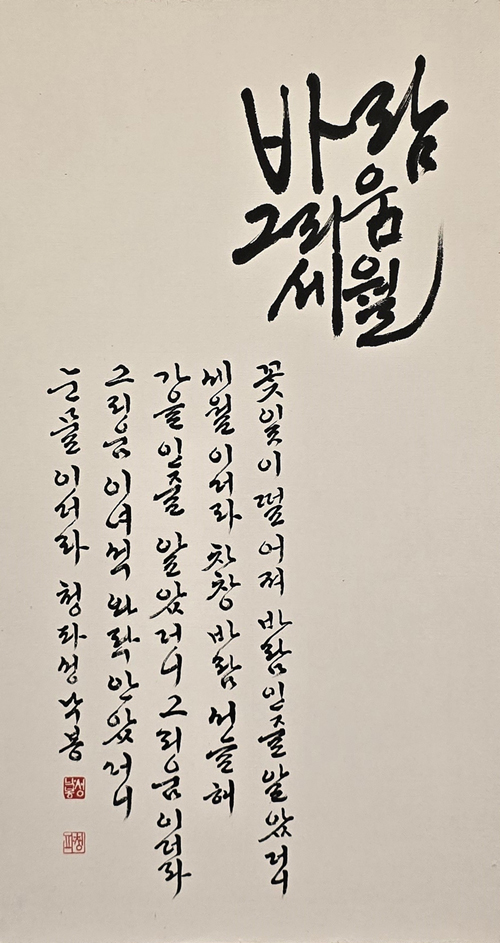 바람
그리움
세월
꽃잎이 떨어져 바람인줄 알았더니
세월이더라 차창 바람 서늘해
가을인줄 알았더니 그리움이더라
그리움 이녀석 와락 안았더니
눈물이더라 청파 성낙봉
성낙봉
청파